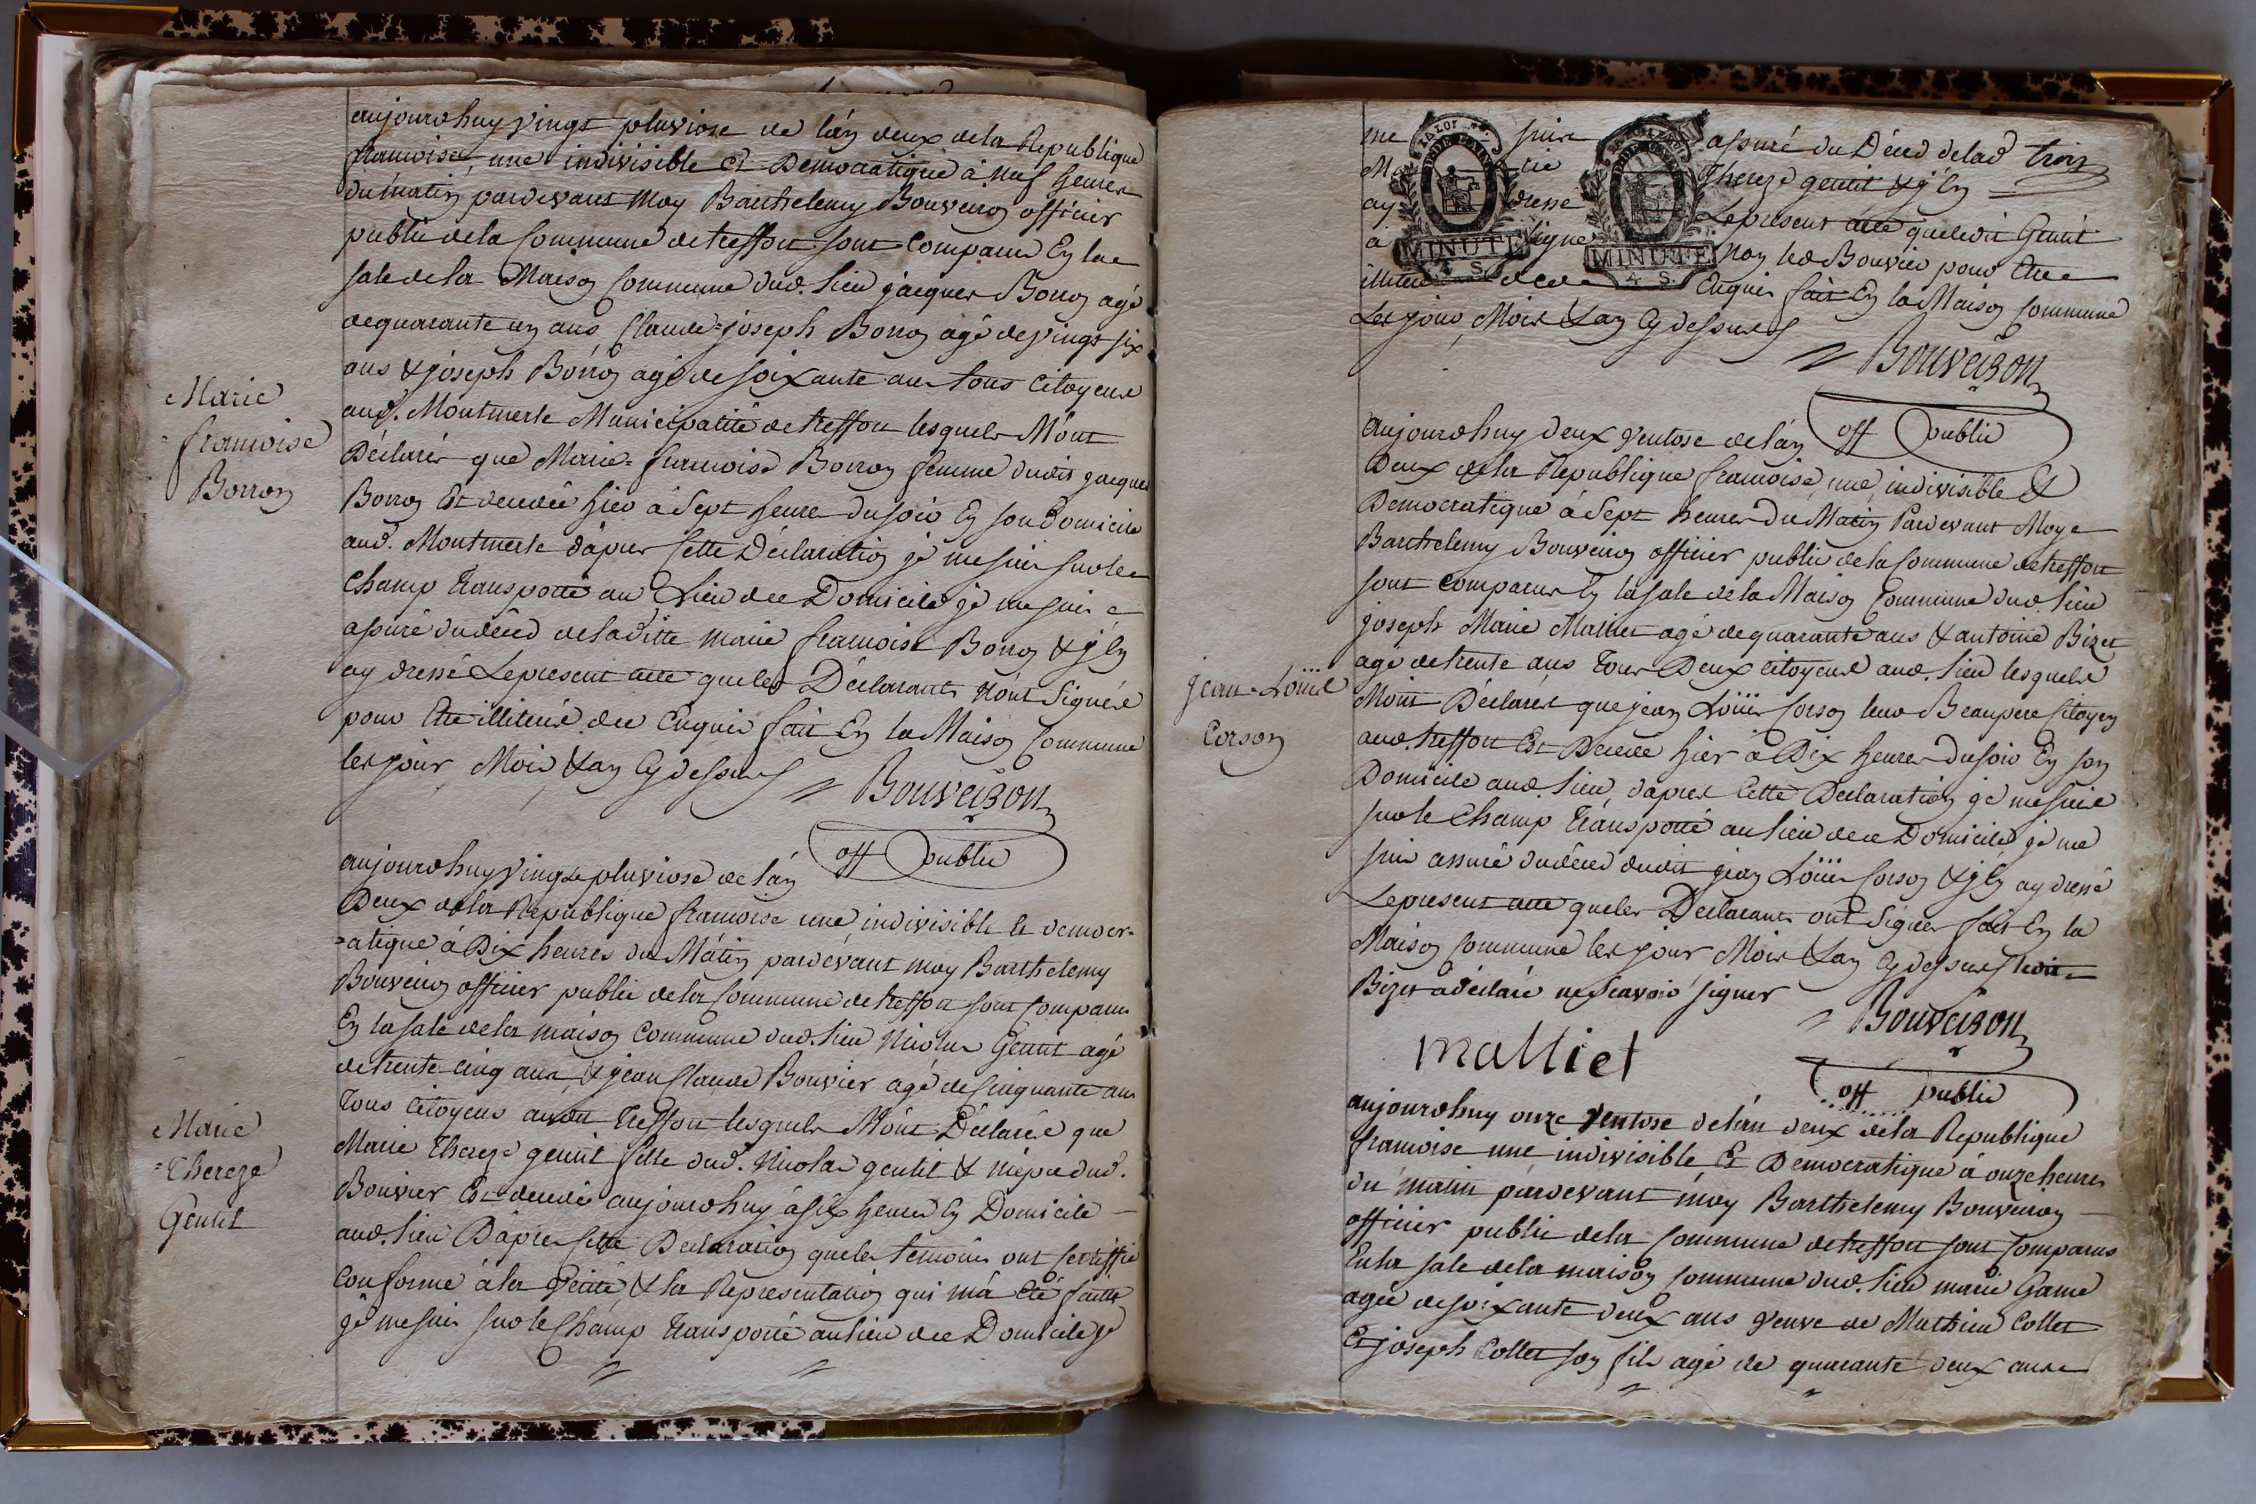 aujourdhuy vingt pluviose de lán deux dela Republique
francoise, une indivisible et Democratique à neuf heures
du matin pardevant Moy Barthelemy Bouveiron officier
public dela Commune de treffort sont Comparus En la
sale dela Maison Commune dud. lieu jacques Borron agé
dequarante un ans, Claude=joseph Borron agé de vingt six
ans & joseph Borron agé de soixante ans tous Citoyens
aud. Montmerle Municipalité de treffort lesquels Mónt
Déclarés que Marie=francoise Borron femme dudit jacques
Borron Est decedée hier à Sept heure du soir En son Domicile
aud. Montmerle dápres Cette Déclaration jé me suis sur le
Champ transporté au Lieu dee Domicile jé me suis
assuré du décéd deladitte marie francoise Borron & j'En
ay dressé Lepresent acte que les Déclarants nónt Signéré
pour être illiteré dee Enquis fait En la Maison Commune
les jour, Mois & an Cy dessus
Bouveiron
off public
Marie
francoise
Borron
aujourdhuy vingt pluviose de lán
Deux dela Republique francoise une, indivisible et democr=
=atique à Dix heures du Mátin pardevant moy Barthelemy
Bouveiron officier public dela Commune de treffort sont Comparus
En la sale dela maison Commune dud. lieu Nicolas Gentit agé
de trente cinq ans & jean Claude Bouvier agé de Cinquante ans
tous Citoyens audit treffort lesquels Mónt Déclaré que
Marie thereze gentit fille dud. Nicolas gentit & niépce dud.
Bouvier Est decedé aujourdhuy à six heures En Domicile
aud. lieu Dápres Cette Declaration que les temoins ont Certiffié
Conforme à la vérité & la Representation qui má été faitte
jé me suis sur le Chámp transporté au lieu dee Domicile jé
Marie
=thereze
Gentit
me suis assuré du Déced delad trois
Thereze gentit & j'En
ay dressé Lepresent acte que ledit Gentit
a signé Non led Bouvier pour être
illiteré dee Enquis fait En la Maison Commune
Les jour, Mois & an Cy dessus
LA LOI
MINUTE
4. S.
MINUTE
4. S.
Bouveiron
off public
aujourdhuy deux ventose de lán
Deux dela Republique francoise, une, indivisible &
Democratique à Sept heures Du Matin Pardevant Moy
Barthelemy Bouveiron officier public dela Commune de treffort
sont Comparus En la sale dela Maison Commune dud. lieu
joseph Marie Malliet agé dequarante ans & antoine Bizet
agé de trente ans tous Deux Citoyens aud. lieu lesquels
Mónt Déclarés que jean Loüis Corson leur Beaupere Citoyen
aud. treffort Est Decedé hier à Dix heures du soir En son
Domicile aud. lieu, dápres Cette Declaration jé me suis
sur le Champ transporté au lieu dee Domicile jé me
suis assuré du décéd dudit jean Loüis Corson & j'En ay dressé
Lepresent acte que les Declarants ont Signer fait En la
Maison Commune les jour Mois & an Cy dessus ledit
Bizet a déclaré ne scavoir signer
Bouveiron
malliet
off public
jean=Loüis
Corson
aujourdhuy onze ventose de lán deux dela Republique
francoise une indivisible Et Democratique à onze heures
du matin pardevant moy Barthelemy Bouveiron
officier public dela Commune de treffort sont Comparus
En la sale dela maison Commune dud. lieu marie Game
agée de soixante deux ans veuve de Mathieu Collet
Et joseph Collet son fils agé de quarante deux ans